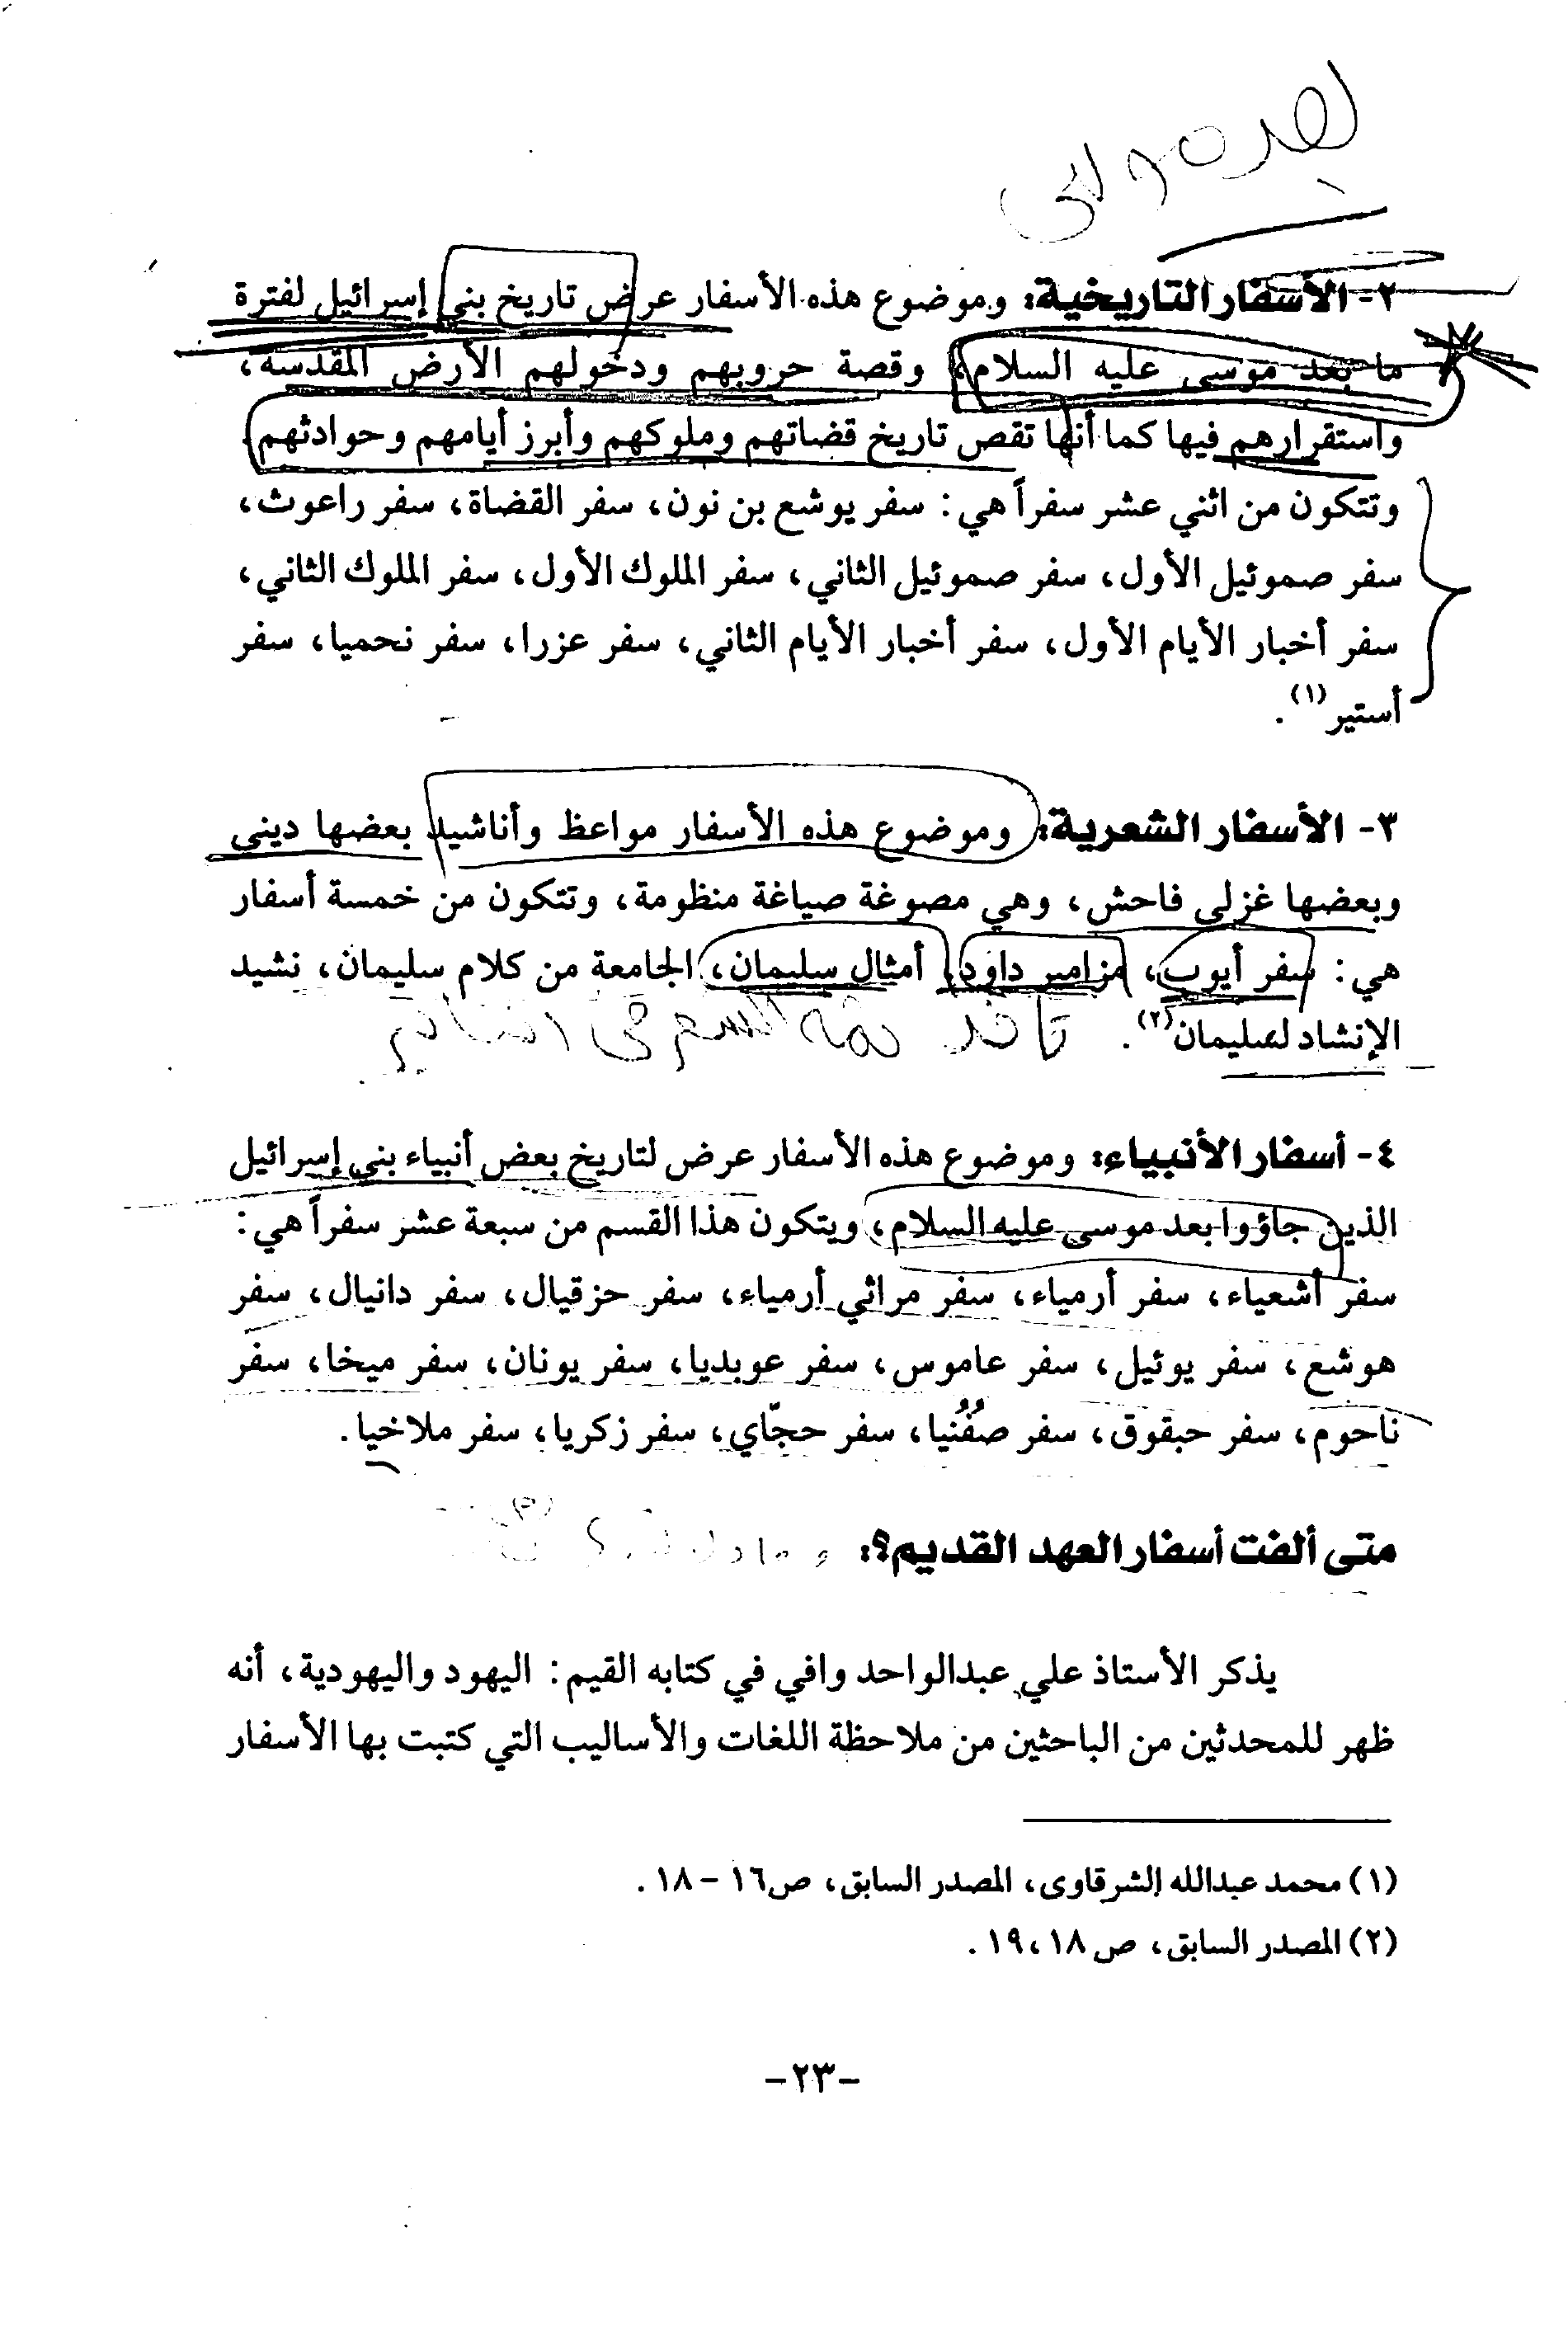 ٢- الأسفار التاريخية: وموضوع هذه الأسفار عرض تاريخ بني إسرائيل لفترة
ما بعد موسى عليه السلام، وقصة حروبهم ودخولهم الأرض المقدسة،
واستقرارهم فيها كما أنها تقص تاريخ قضاتهم وملوكهم وأبرز أيامهم وحوادثهم
وتتكون من اثني عشر سفراً هي: سفر يوشع بن نون، سفر القضاة، سفر راعوث،
سفر صموئيل الأول، سفر صموئيل الثاني، سفر الملوك الأول، سفر الملوك الثاني،
سفر أخبار الأيام الأول، سفر أخبار الأيام الثاني، سفر عزرا، سفر نحميا، سفر
أستير(١).
٣- الأسفار الشعرية: وموضوع هذه الأسفار مواعظ وأناشيد بعضها ديني
وبعضها غزلي فاحش، وهي مصوغة صياغة منظومة، وتتكون من خمسة أسفار
هي: سفر أيوب، مزامير داود، أمثال سليمان، الجامعة من كلام سليمان، نشيد
الإنشاد لسليمان(٢).
٤- أسفار الأنبياء: وموضوع هذه الأسفار عرض لتاريخ بعض أنبياء بني إسرائيل
الذين جاؤوا بعد موسى عليه السلام، ويتكون هذا القسم من سبعة عشر سفراً هي:
سفر أشعياء، سفر أرمياء، سفر مراثي أرمياء، سفر حزقيال، سفر دانيال، سفر
هوشع، سفر يوئيل، سفر عاموس، سفر عوبديا، سفر يونان، سفر ميخا، سفر
ناحوم، سفر حبقوق، سفر صُفُنيا، سفر حجّاي، سفر زكريا، سفر ملاخيا.
متى ألفت أسفار العهد القديم؟:
يذكر الأستاذ علي عبدالواحد وافي في كتابه القيم: اليهود واليهودية، أنه
ظهر للمحدثين من الباحثين من ملاحظة اللغات والأساليب التي كتبت بها الأسفار
(١) محمد عبدالله الشرقاوى، المصدر السابق، ص١٦ – ١٨.
(٢) المصدر السابق، ص ١٨، ١٩.
–٢٣–